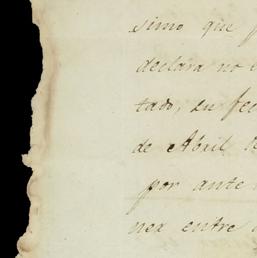 simo que
declara no
tado, su fec
de Abril
por ante
nex entre